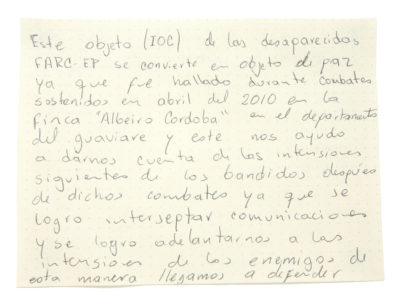 Este objeto (IOC) de las desaparecidas
FARC-EP se convierte en objeto de paz
ya que fue hallado durante combates
sostenidos en abril del 2010 en la
finca "Albeiro Cordoba" en el departamento
del guaviare y este nos ayudo
a darnos cuenta de las intensiones
siguientes de los bandidos después
de dichos combates ya que se
logro interseptar comunicaciones
y se logro adelantarnos a las
intensiones de los enemigos de
esta manera llegamos a defender